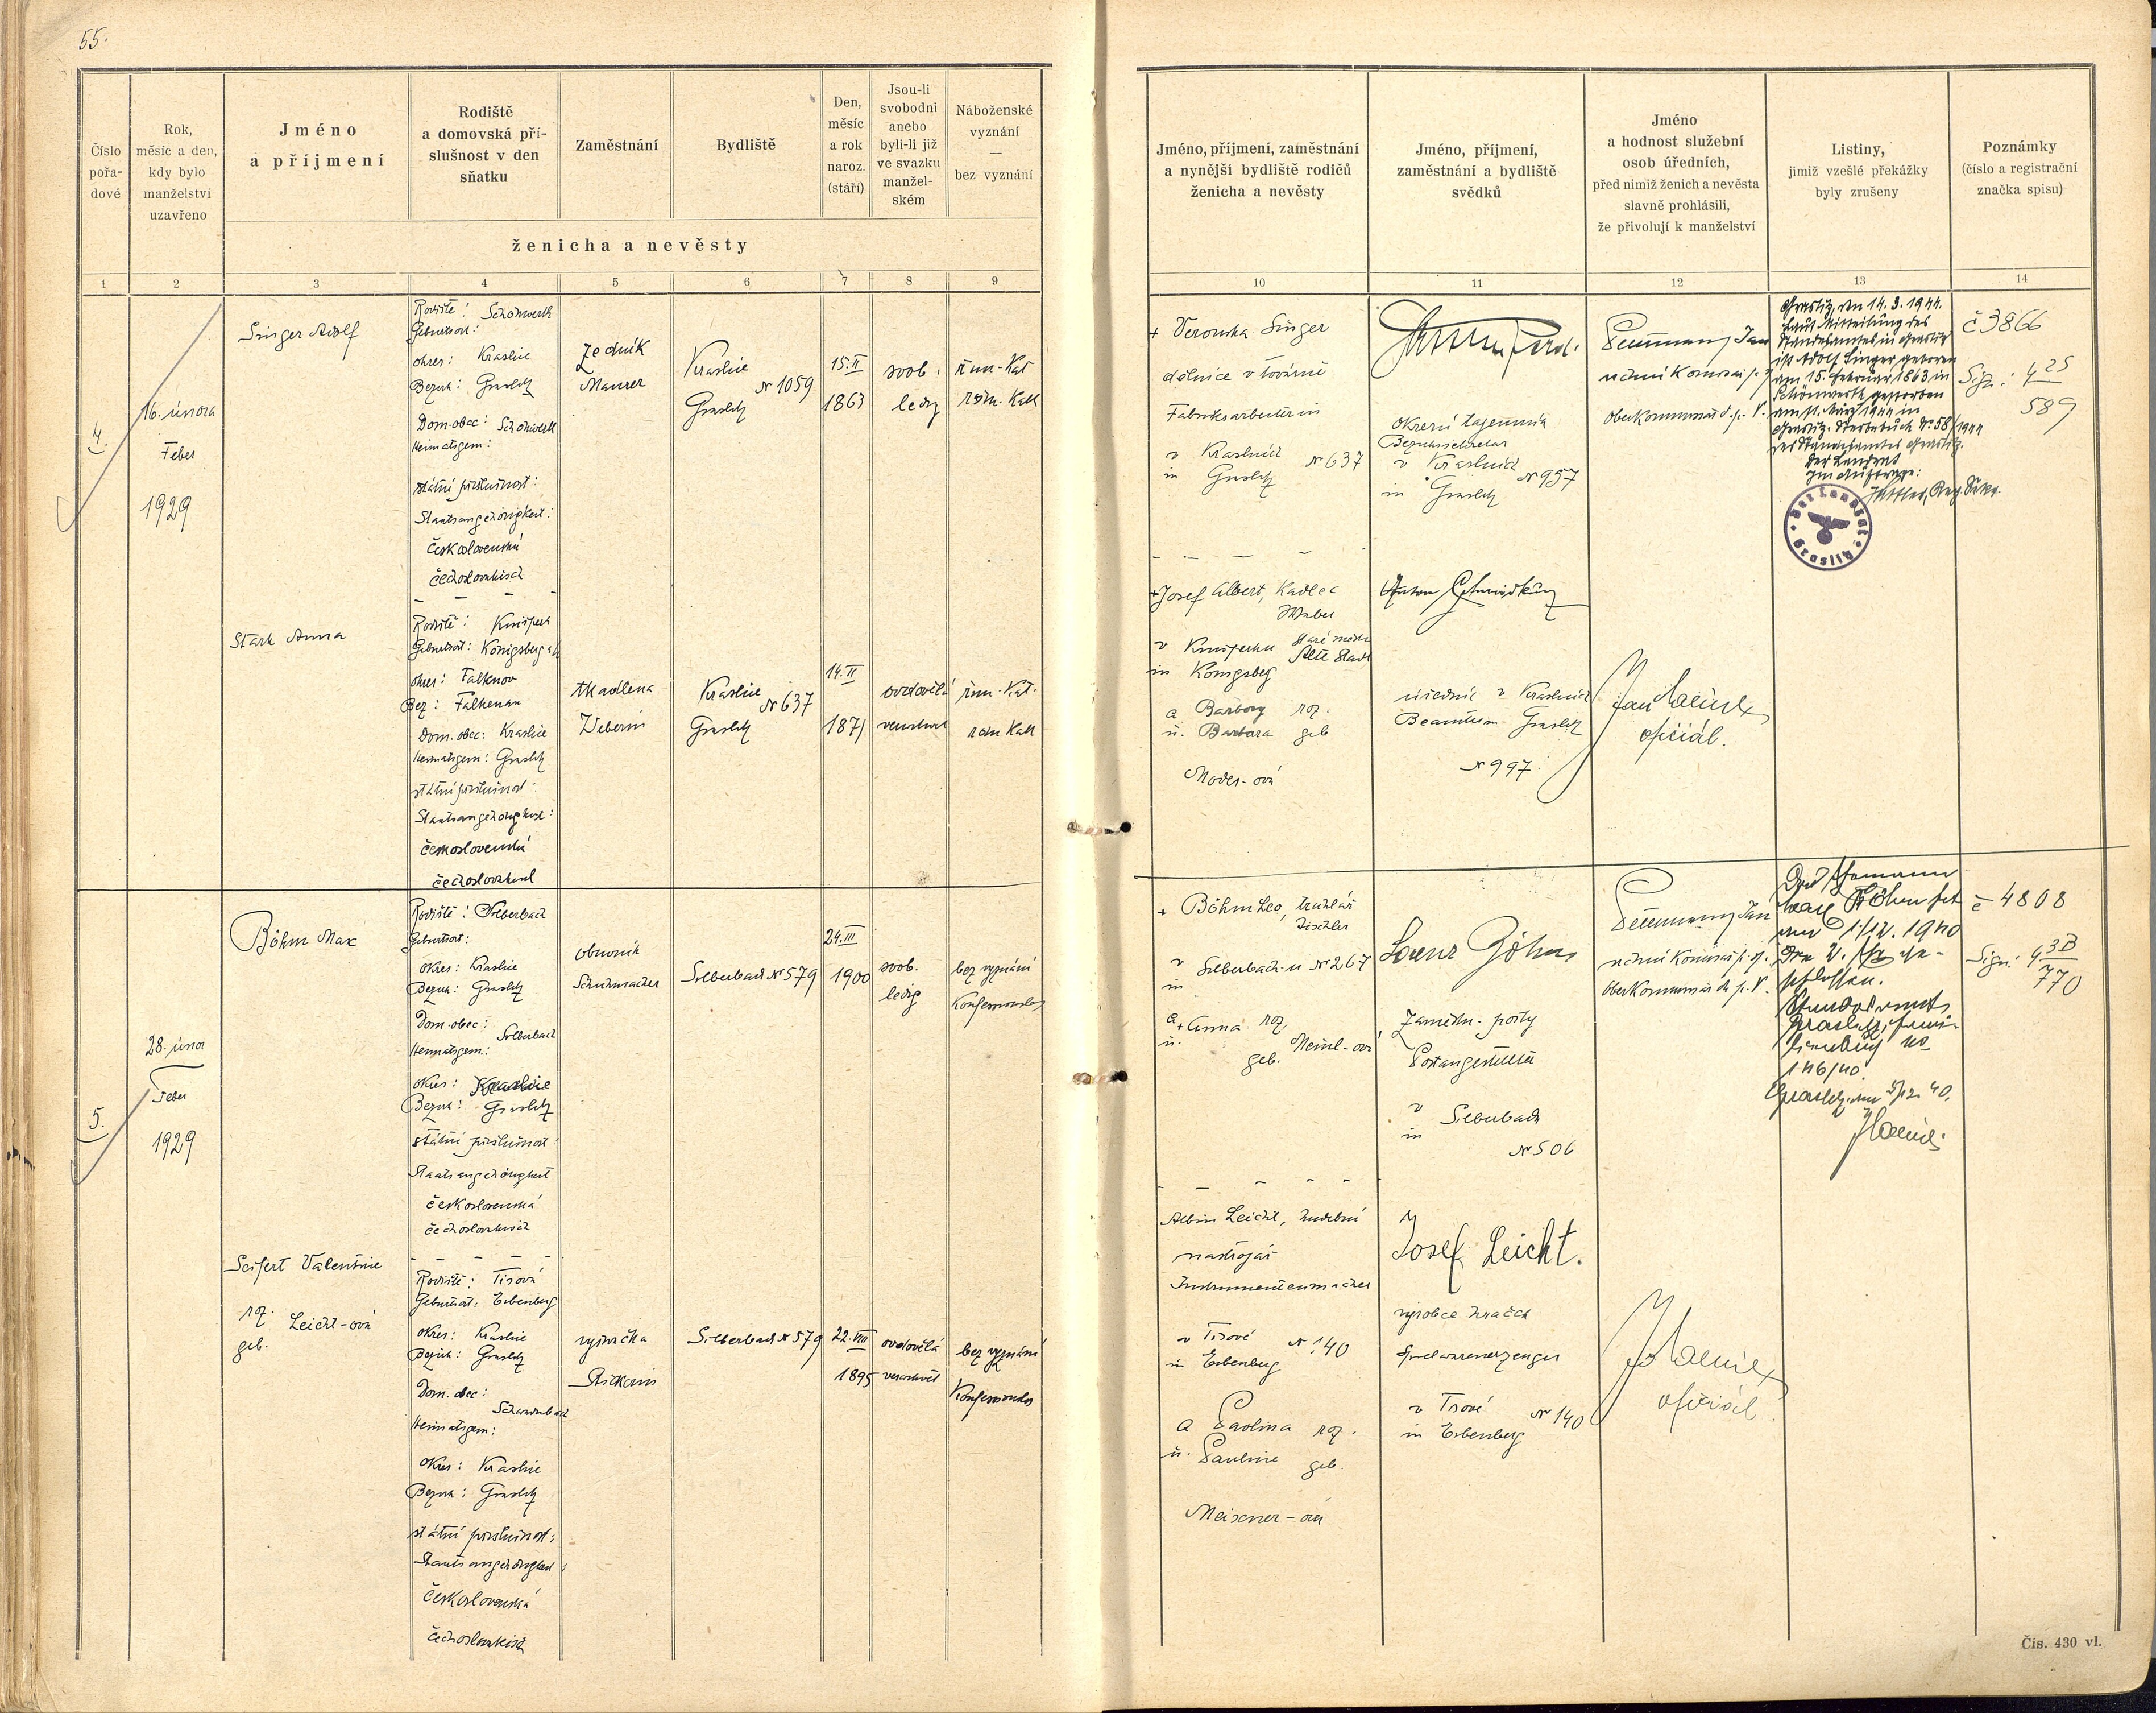 55.
Číslo
pořa-
dové
Rok,
měsíc a den,
kdy bylo
manželství
uzavřeno
Jméno
a příjmení
Rodiště
a domovská pří-
slušnost v den
sňatku
Zaměstnání
Bydliště
Den,
měsíc
a rok
naroz.
(stáří)
Jsou-li
svobodni
anebo
byli-li již
ve svazku
manžel-
ském
Náboženské
vyznání
—
bez vyznání
ženicha a nevěsty
1 2 3 4 5 6 7 8 9
4.
16. února
Feber
1929
Singer Adolf
Rodiště: Schönwerth
Geburtsort:
okres: Kraslice
Bezirk: Graslitz
Dom. obec: Schönwerth
Heimatsgem:
státní příslušnost:
Staatsangehörigkeit:
československá
čechoslovakisch
Zedník
Maurer
Kraslice
N 1059
Graslitz
15. II
1863
svob.
ledig
řím-Kat
röm. Kath
Stark Anna
Rodiště:
Geburtsort: Königsberg a/E
okres: Falknov
Bez: Falkenau
Dom. obec: Kraslice
Heimatsgem: Graslitz
státní příslušnost:
Staatsangehörigkeit:
československá
čechoslovakisch
tkadlena
Weberin
Kraslice
N 637
Graslitz
14. II
1871
ovdovělá
verwitwet
řím. Kat.
röm Kath
5.
28. únor
Feber
1929
Böhm Max
Rodiště: Silberbach
Geburtsort:
okres: Kraslice
Bezirk: Graslitz
Dom. obec: Silberbach
Heimatsgem:
okres: Kraslice
Bezirk: Graslitz
státní příslušnost:
Staatsangehörigkeit
československá
čechoslovakisch
obuvník
Schuhmacher
Silberbach N 579
24. III
1900
svob.
ledig
bez vyznání
Konfessionslos
Seifert Valentine
roz. Leicht-ová
geb.
Rodiště: Tisová
Geburtsort: Eibenberg
okres: Kraslice
Bezirk: Graslitz
Dom. obec:
Heimatsgem:
okres: Kraslice
Bezirk: Graslitz
státní příslušnost:
Staatsangehörigkeit:
československá
čechoslovakisch
vyšívačka
Stickerin
Silberbach N 579
22. VIII
1895
ovdovělá
verwitwet
bez vyznání
Konfessionslos
Jméno, příjmení, zaměstnání
a nynější bydliště rodičů
ženicha a nevěsty
Jméno, příjmení,
zaměstnání a bydliště
svědků
Jméno
a hodnost služební
osob úředních,
před nimiž ženich a nevěsta
slavně prohlásili,
že přivolují k manželství
Listiny,
jimiž vzešlé překážky
byly zrušeny
Poznámky
(číslo a registrační
značka spisu)
10 11 12 13 14
+ Veronika Singer
dělnice v továrně
Fabriksarbeiterin
v Kraslicích
N 637
in Graslitz
okresní tajemník
Bezirkssekretär
v Kraslicích
N 957
in Graslitz
Jan
vrchní komisař p. s.
Oberkommissär d. p. V.
Graslitz, den 14. 3. 1944.
Laut Mitteilung des
Standesamtes in Graslitz
ist Adolf Singer geboren
am 15. Februar 1863 in
Schönwerth gestorben
am 11. März 1944 in
Graslitz. Sterbebuch No 58/1944
des Standesamtes Graslitz.
Der Landrat
Im Auftrage:
Reg. Sekr.
Der Landrat Graslitz
č 3866
Sign: 4 25
589
+ Josef Albert, Kadlec
Weber
v
Staré město
Alte Stadt
in Königsberg
a Barbory roz.
u. Barbara geb
Moder-ová
Anton
úředník v Kraslicích
Beamter in Graslitz
N 997
Jan
oficiál.
+ Böhm Leo, truhlář
Tischler
v
Silberbach-u N 267
in
a + Anna roz.
Meinl-ová
u. geb.
Lorenz Böhm
Zaměstn. pošty
Postangestellter
v Silberbach
in
N 506
Jan
vrchní komisař p. s.
Oberkommissär d. p. V.
Der Ehemann
Max Böhm hat
am
1940
geschlossen.
Standesamt
Graslitz, Famili-
enbuch No
146/40.
č 4808
Sign: 4
770
Albin Leicht, hudební
nástrojař
Instrumentenmacher
v Tisové
N 140
in Eibenberg
a Paulina roz.
u. Pauline geb.
Meixner-ová
Josef Leicht.
výrobce hraček
Spielwarenerzeuger
v Tisové
N 140
in Eibenberg
oficiál
Čís. 430 vl.